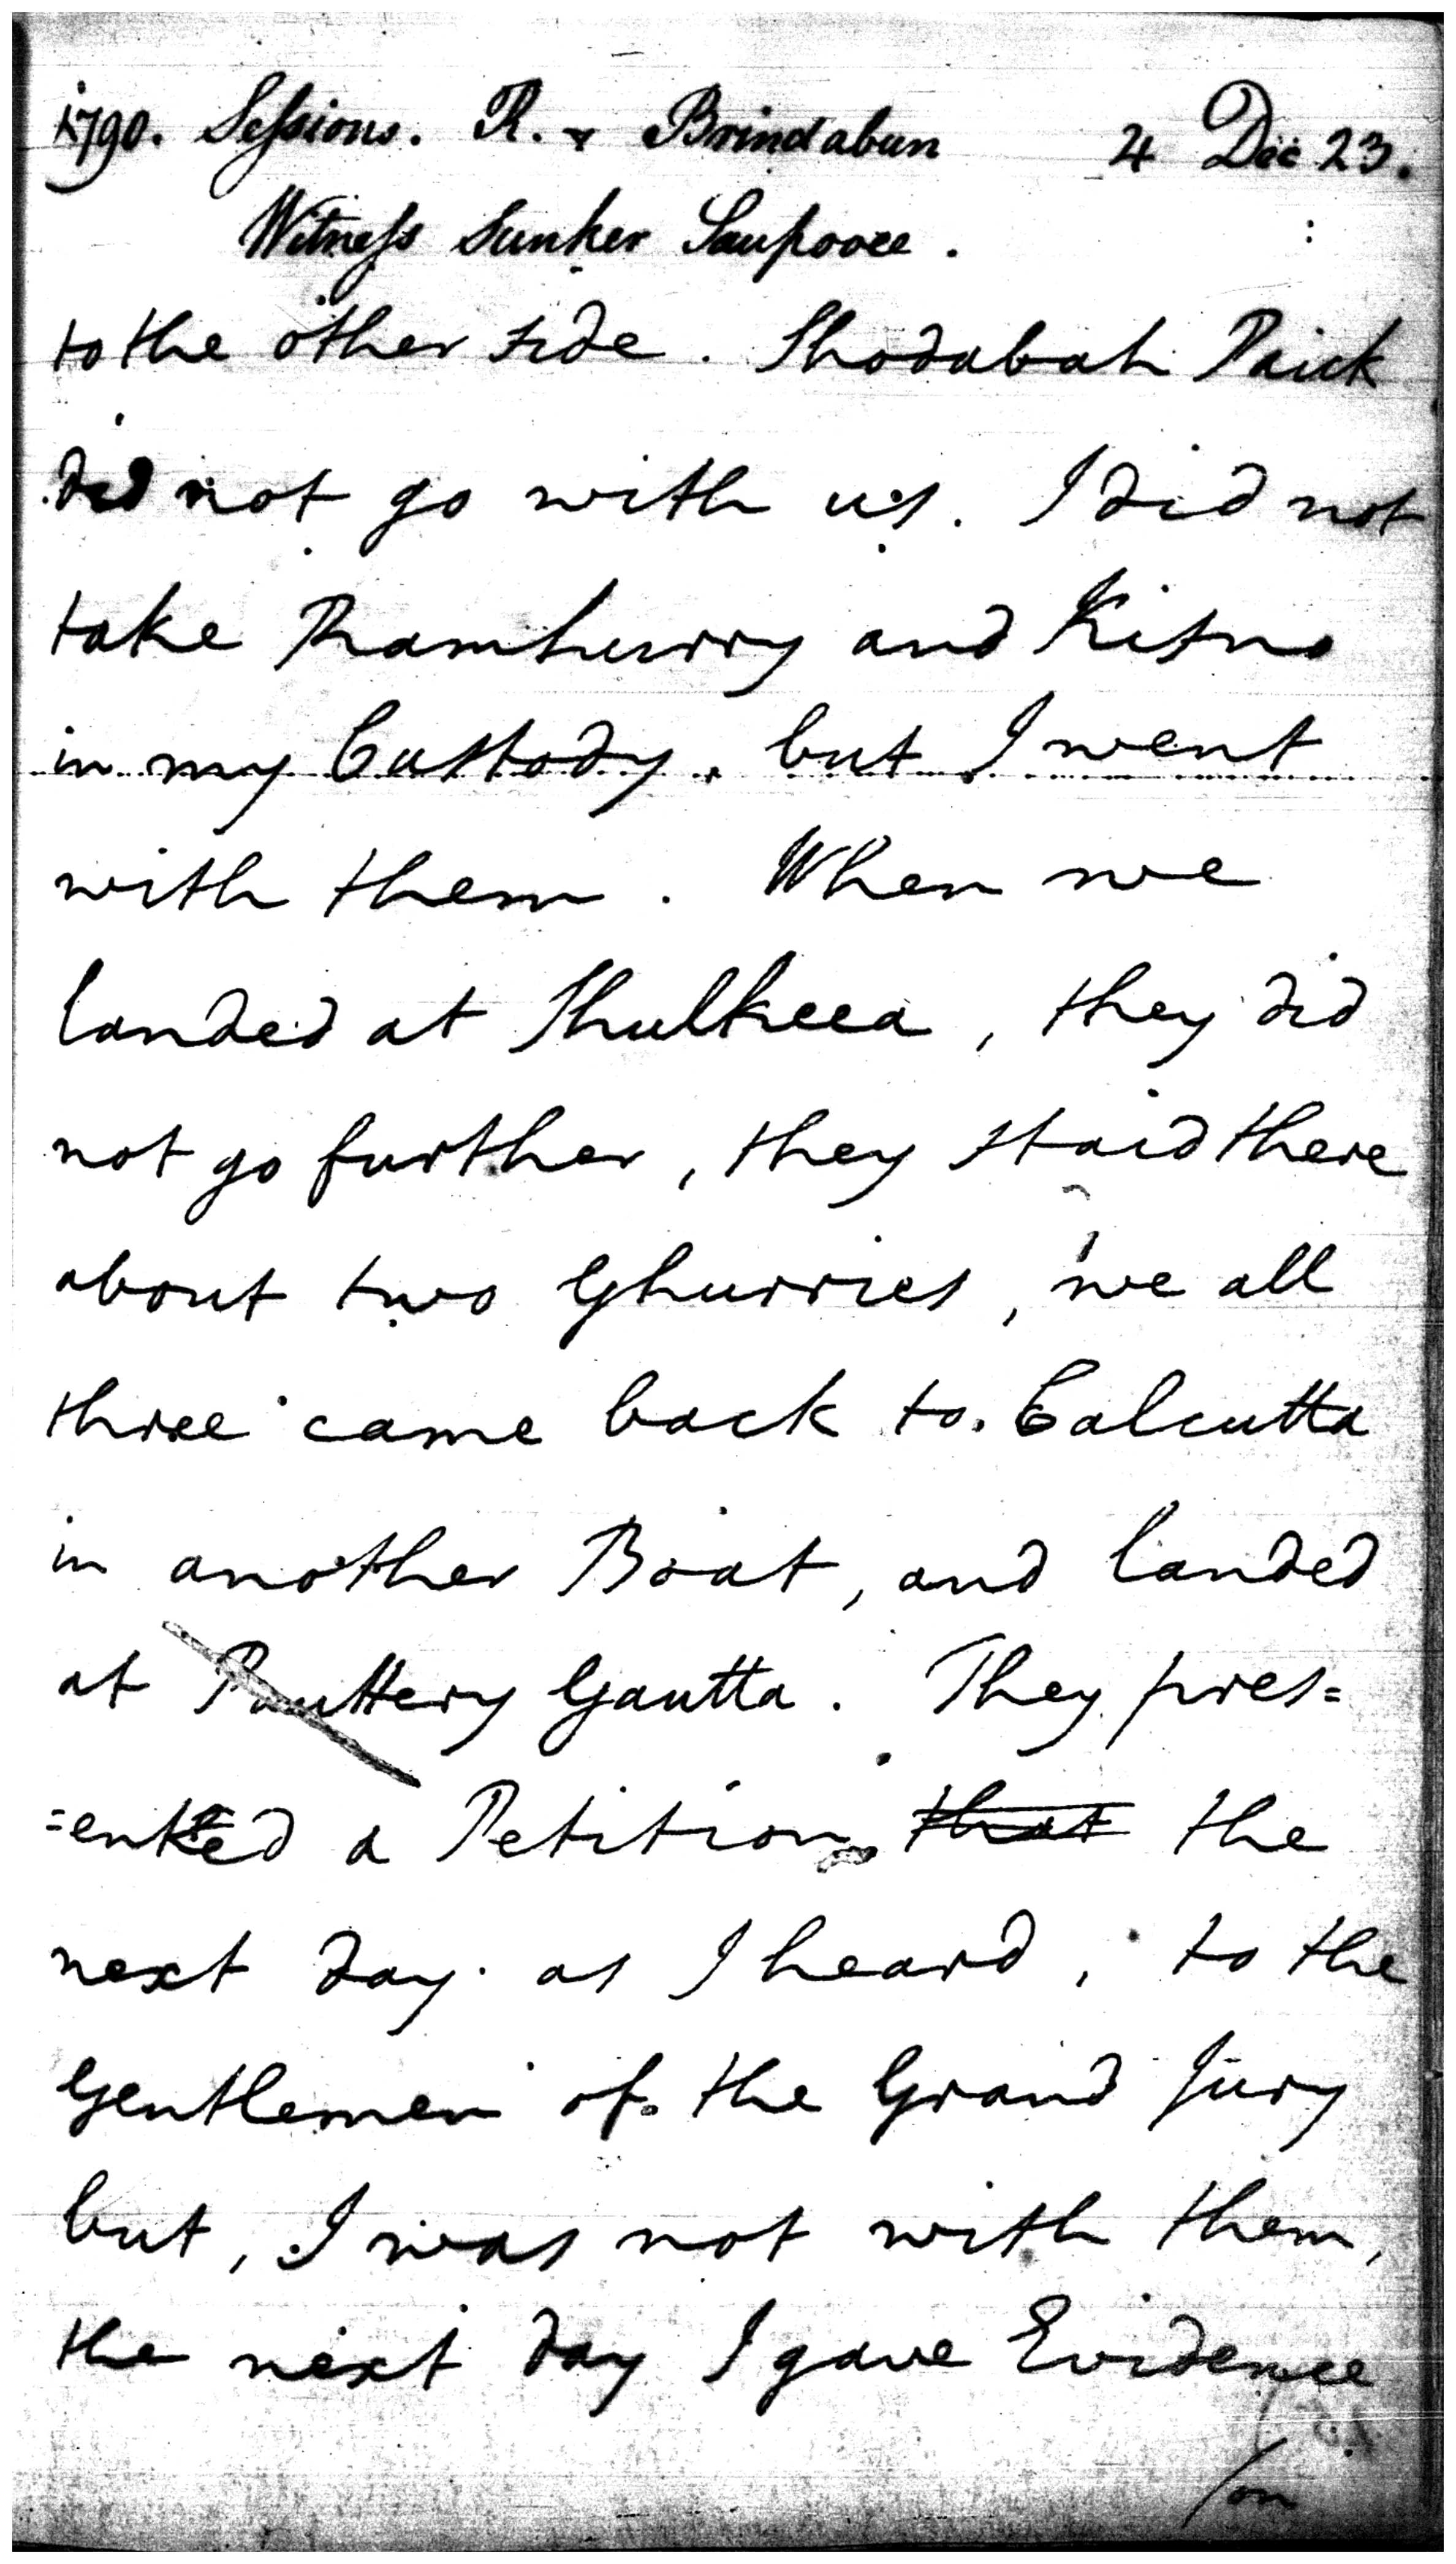 1790. Sessions. R. v Brindabun 4 Dec 23.
Witness Sunker Saupooee.
to the other side. Shodabah Paick
did not go with us. I did not
take Ramhurry and Kisno
in my Custody, but I went
with them. When we
landed at Shulkeea, they did
not go further, they staid there
about two Ghurries, we all
three came back to Calcutta
in another Boat, and landed
at Puttery Gautta. They pres=
=ented a Petition that the
next day as I heard, to the
Gentlemen of the Grand Jury
but, I was not with them,
the next day I gave Evidence
/on